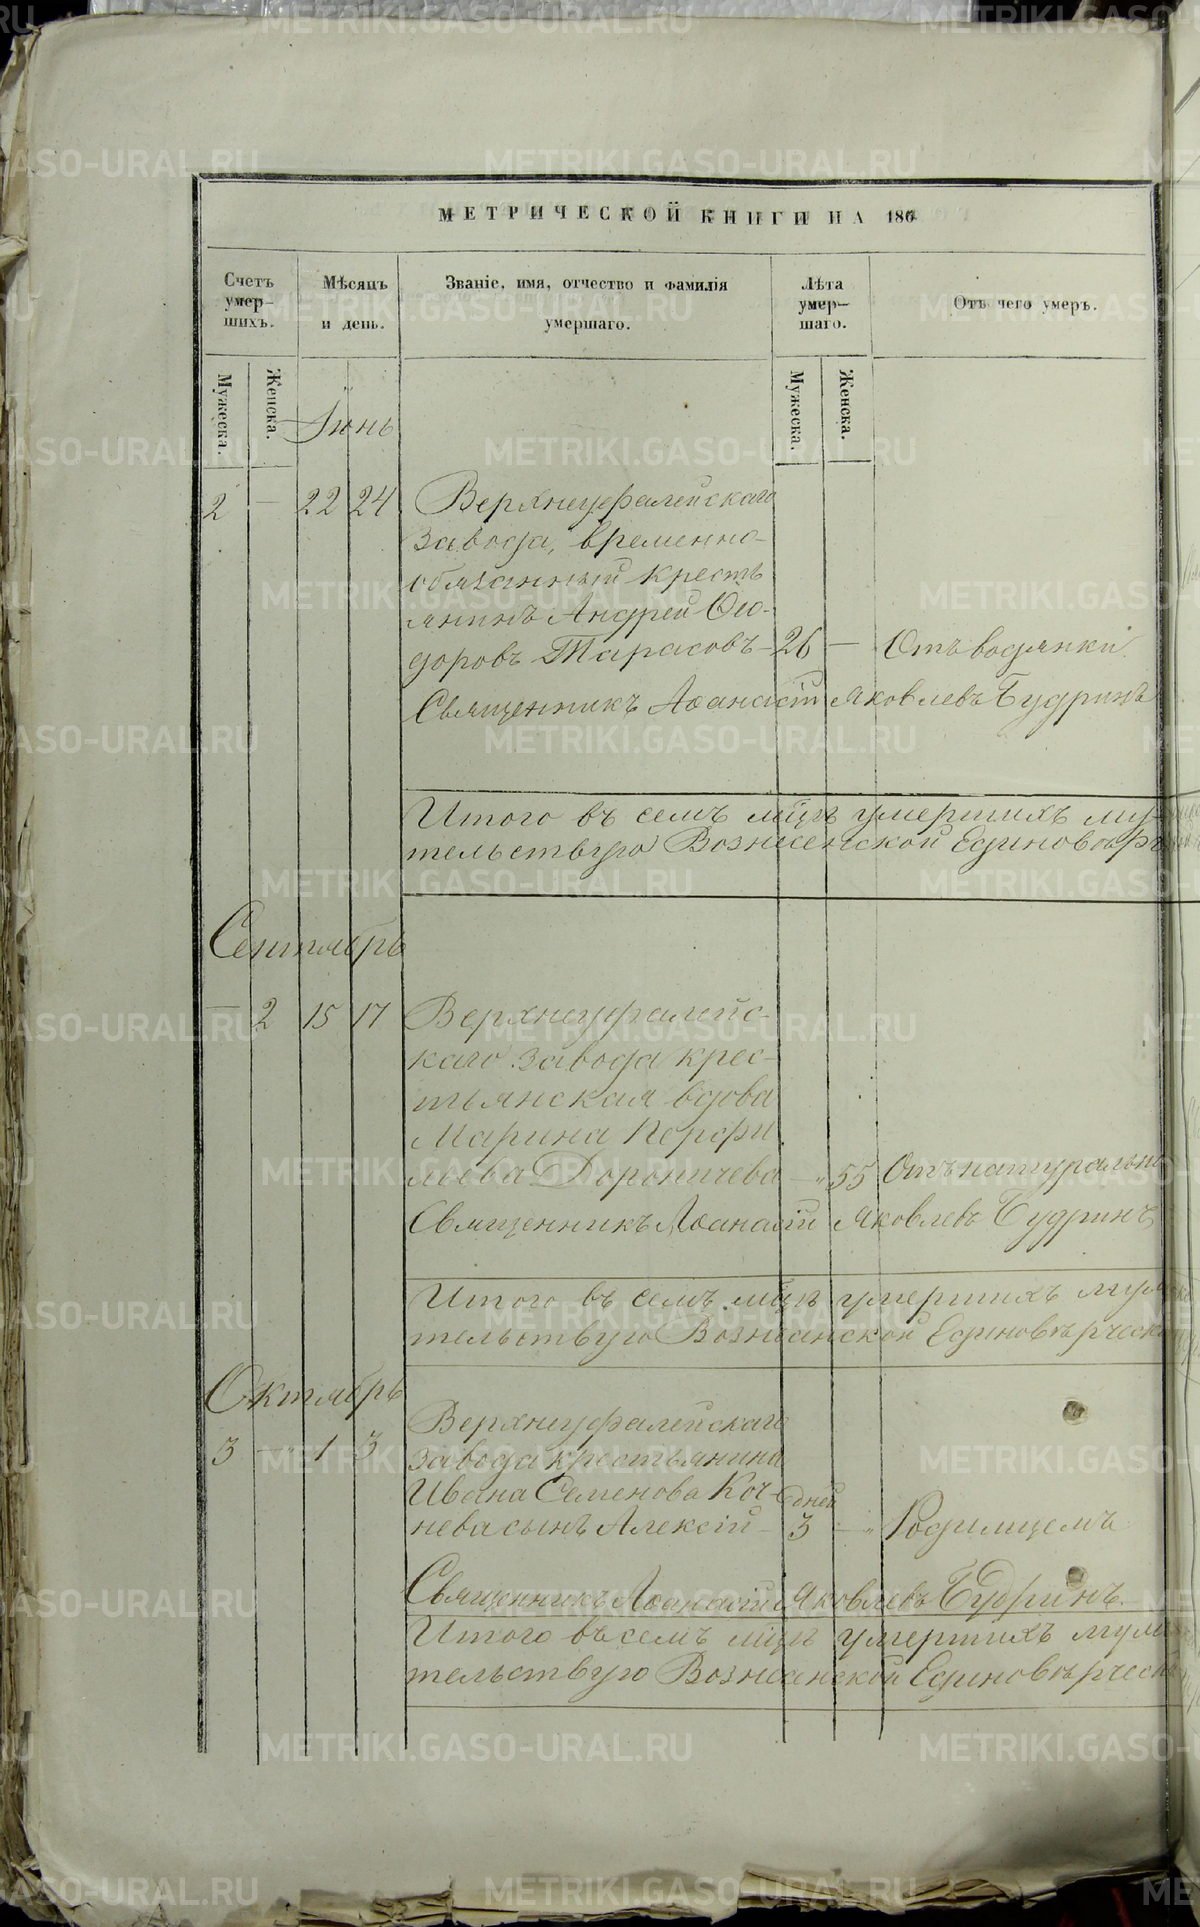 МЕТРИЧЕСКОЙ КНИГИ НА 186
Счетъ умер-шихъ.
Мѣсяцъ и день.
Званіе, имя, отчество и фамилія умершаго.
Лѣта умер-шаго.
Отъ чего умеръ.
Мужеска.
Женска.
Мужеска.
Женска.
Іюнь
2 — 22 24 Верхнеуфалейскаго
завода, временно-
обязанный кресть
янинъ Андрей Ѳео-
доровъ Тарасовъ - 26 — Отъ водянки.
Священникъ Аѳанасій Яковлевъ Будринъ
Итого въ семъ мцѣ умершихъ му-
тельствую Вознесенской Единовѣр
Сентябрь
— 2 15 17 Верхнеуфалейс-
каго завода крес-
тьянская вдова
Марина Перфи
льева Дороничева — 55 Отъ натурально
Священникъ Аѳанасій Яковлевъ Будринъ
Итого въ семъ мцѣ умершихъ муж
тельствую Вознесенской Единовѣрческ
Октябрь
3 — 1 3 Верхнеуфалейскаго
завода крестьянина
Ивана Семенова Коч- дней
нева сынъ Алексій - 3 — Родимцемъ
Священникъ Аѳанасій Яковлевъ Будринъ.
Итого въ семъ мцѣ умершихъ муж
тельствую Вознесенской Единовѣрческ
METRIKI.GASO-URAL.RU